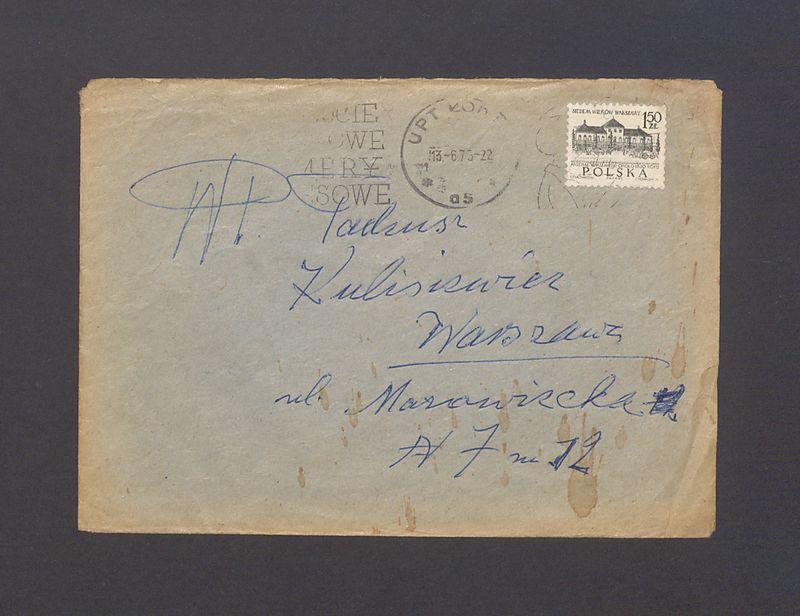 ŚCIE
OWE
MERY
SOWE
UPT ŁÓDŹ 1
13.-6.75-22
a5
SIEDEM WIEKÓW WARSZAWY
1,50 ZŁ
POLSKA
WP. Tadeusz
Kulisiewicz
Warszawa
ul. Marowiscka
N 7 m 12